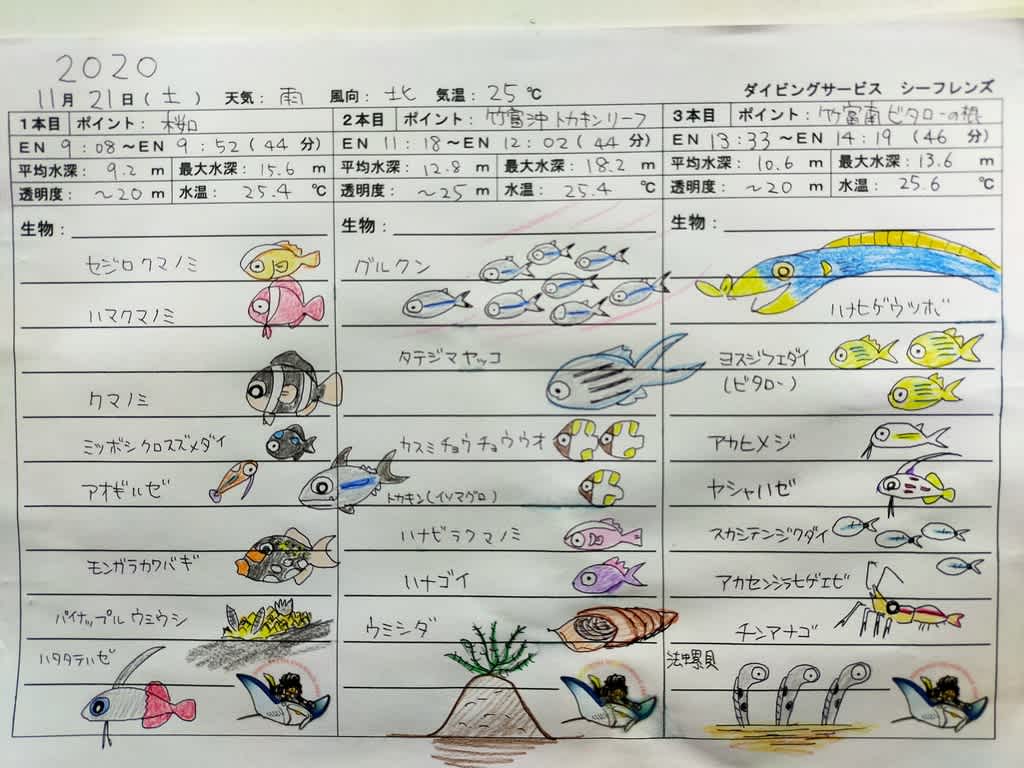 2020
11月 21日(土) 天気: 雨 風向: 北 気温: 25℃ ダイビングサービス シーフレンズ
1本目 ポイント: 桜口
EN 9:08~EN 9:52(44分)
平均水深: 9.2 m 最大水深: 15.6 m
透明度: ~20 m 水温: 25.4 ℃
生物:
セジロクマノミ
ハマクマノミ
クマノミ
ミツボシクロスズメダイ
アオギハゼ
モンガラカワハギ
パイナップルウミウシ
ハタタテハゼ
2本目 ポイント: 竹富沖トカキンリーフ
EN 11:18~EN 12:02(44分)
平均水深: 12.8 m 最大水深: 18.2 m
透明度: ~25 m 水温: 25.4 ℃
生物:
グルクン
タテジマヤッコ
カスミチョウチョウウオ
トカキン(イソマグロ)
ハナビラクマノミ
ハナゴイ
ウミシダ
3本目 ポイント: 竹富南ビタローの根
EN 13:33~EN 14:19(46分)
平均水深: 10.6 m 最大水深: 13.6 m
透明度: ~20 m 水温: 25.6 ℃
生物:
ハナヒゲウツボ
ヨスジフエダイ
(ビタロー)
アカヒメジ
ヤシャハゼ
スカシテンジクダイ
アカセンシラヒゲエビ
チンアナゴ
法螺貝